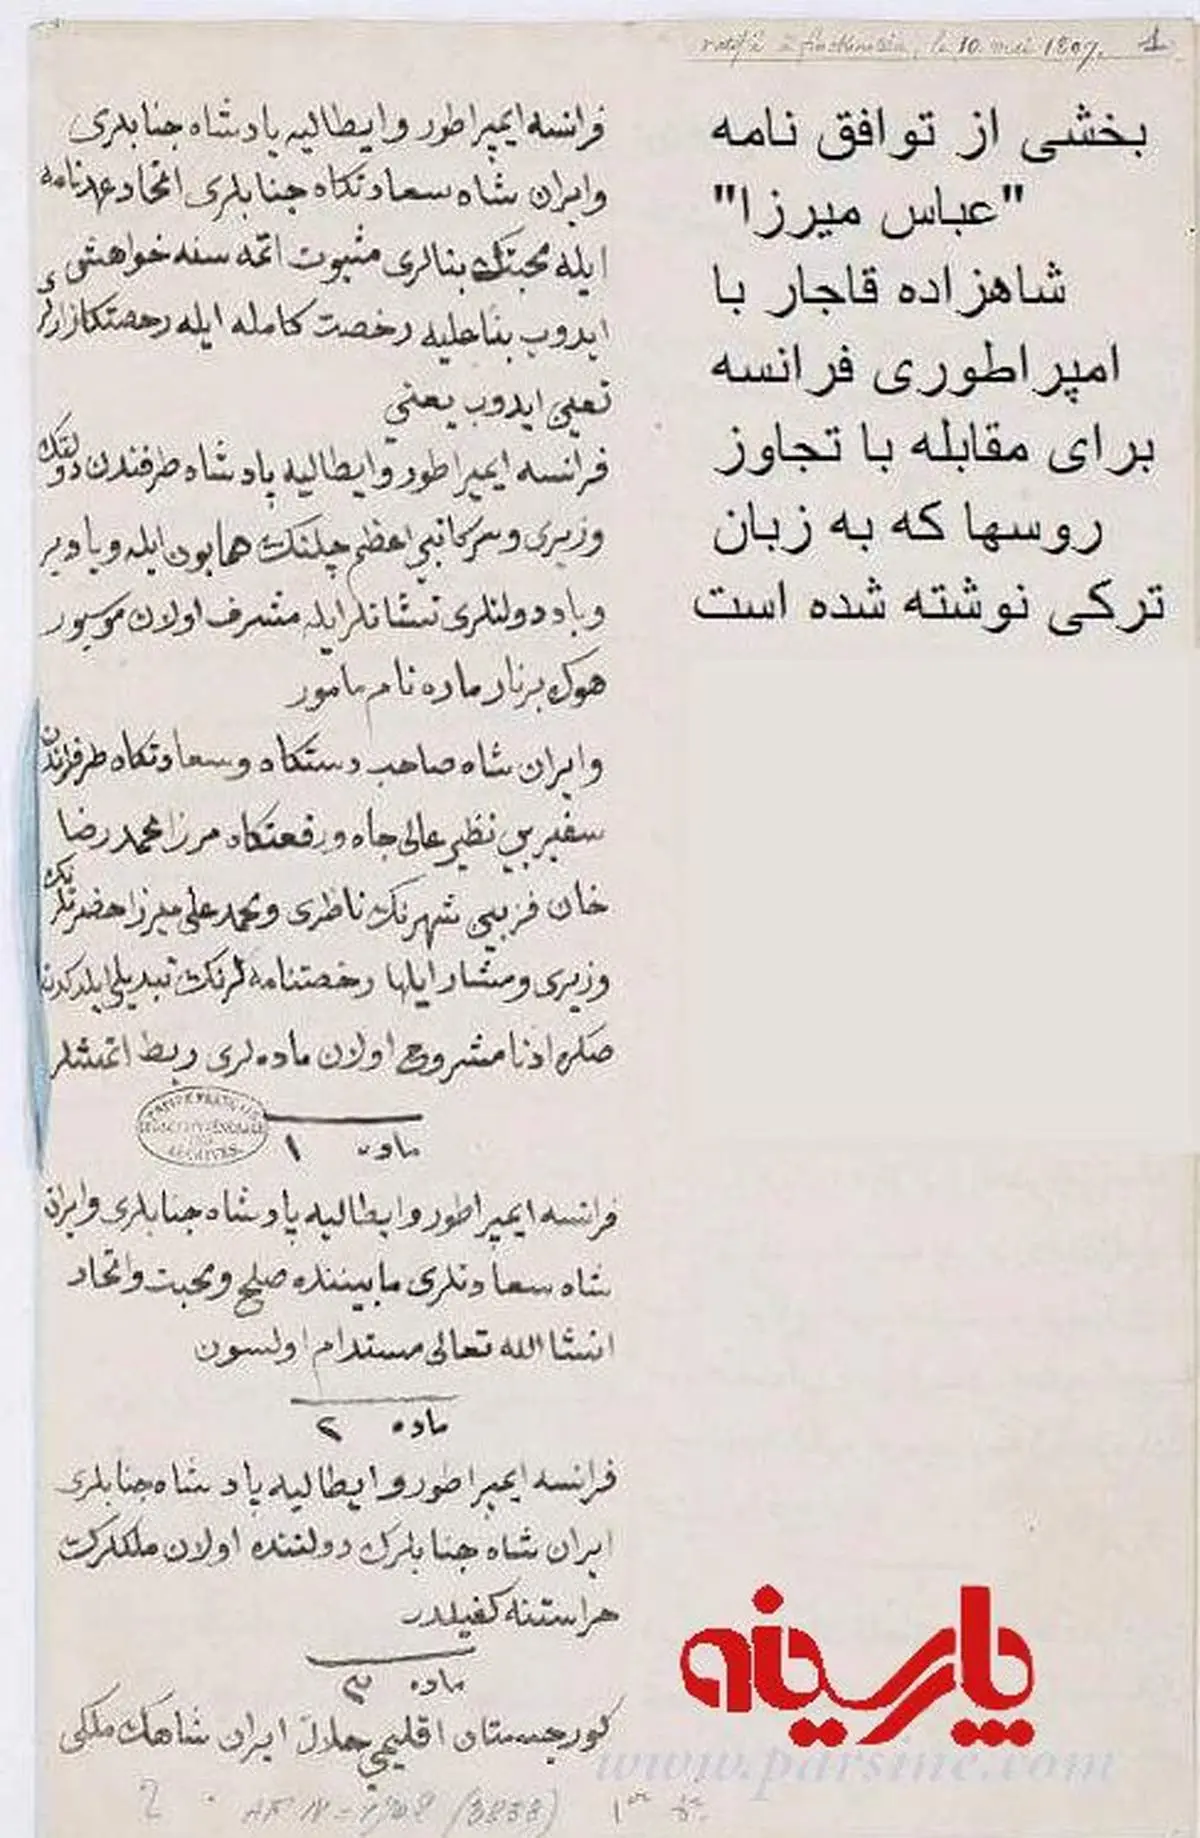 ratifié à Finckenstein, le 10 mai 1807. 1
بخشی از توافق نامه
"عباس میرزا"
شاهزاده قاجار با
امپراطوری فرانسه
برای مقابله با تجاوز
روسها که به زبان
ترکی نوشته شده است
فرانسه ایمپراطور وایطالیه پادشاه جنابلری
وایران شاه سعادتکاه جنابلری اتحاد عهدنامه
ایله محبتنک بنالری مثبوت اتمه سنه خواهشی
ایدوب بناعلیه رخصت کامله ایله رخصتکارلر
تعیین ایدوب یعنی
فرانسه ایمپراطور وایطالیه پادشاه طرفندن دولتک
وزیری وسرکاتبی اعظم همایون ایله و
دولتلری نشانلر ایله مشرف اولان موسیور
هوک برنار ماره نام مامور
وایران شاه صاحب دستکاه وسعادتکاه طرفلرندن
سفیر بی نظیر عالی جاه ورفعتکاه مرزا محمد رضا
خان قزبین شهرنک ناظری ومحمد علی میرزا حضرتلرینک
وزیری ومشار ایلها رخصتنامه لرنک تبدیلی
صکره ادنا مشروح اولان ماده لری ربط اتمشلر
ماده ۱
فرانسه ایمپراطور وایطالیه پادشاه جنابلری وایران
شاه سعادتلری مابیننده صلح ومحبت واتحاد
انشا الله تعالی مستدام اولسون
ماده ۲
فرانسه ایمپراطور وایطالیه پادشاه جنابلری
ایران شاه جنابلرک دولتنده اولان ملکلرک
حراستنه کفیلدر
ماده ۳
کورجستان اقلیمی حلال ایران شاهک ملکی
پارسینه
www.parsine.com
2